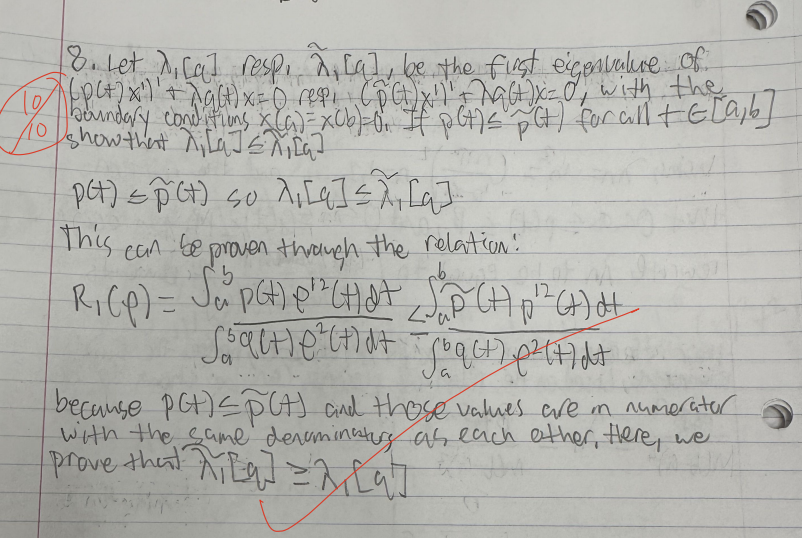 8. Let λ₁[q] resp. λ̃₁[q], be the first eigenvalue of
(p(t)x')' + λq(t)x=0 resp. (p̃(t)x')' + λq(t)x=0, with the
boundary conditions x(a)=x(b)=0. If p(t) ≤ p̃(t) for all t ∈ [a,b]
show that λ₁[q] ≤ λ̃₁[q]
10/10
p(t) ≤ p̃(t) so λ₁[q] ≤ λ̃₁[q]
This can be proven through the relation:
R₁(φ) = ∫ₐᵇ p(t) φ'²(t)dt / ∫ₐᵇ q(t) φ²(t)dt ≤ ∫ₐᵇ p̃(t) φ'²(t)dt / ∫ₐᵇ q(t) φ²(t)dt
because p(t) ≤ p̃(t) and those values are in numerator
with the same denominators as each other. Here, we
prove that λ̃₁[q] ≥ λ₁[q]